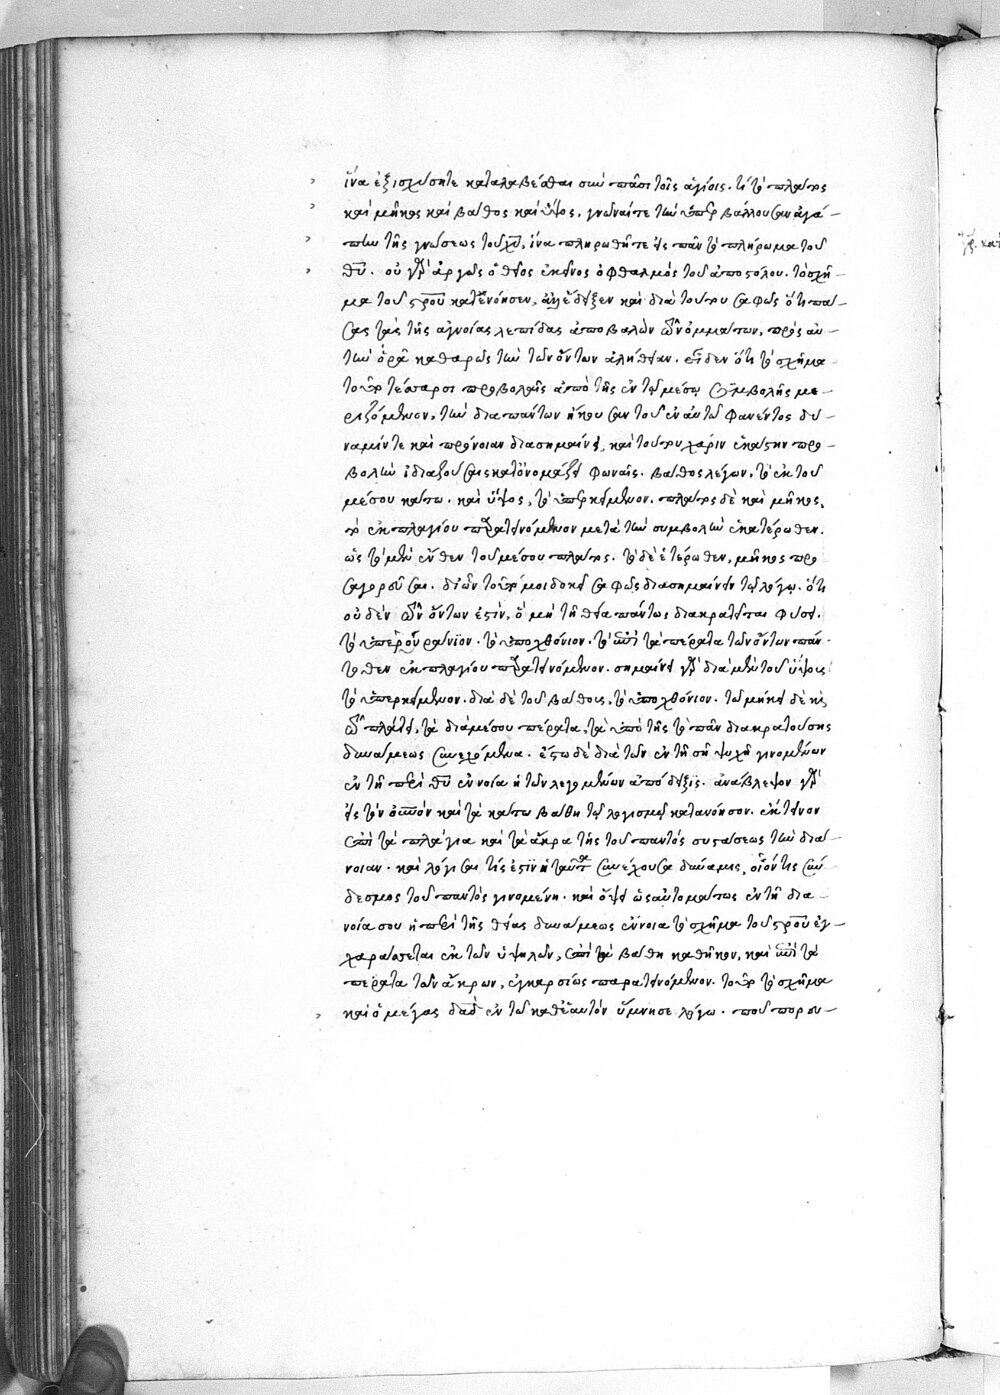 ἵνα ἐξισχύσητε καταλαβέσθαι σὺν πᾶσι τοῖς ἁγίοις. τί τὸ πλάτος
καὶ μῆκος καὶ βάθος καὶ ὕψος, γνῶναί τε τὴν ὑπερβάλλουσαν ἀγά–
πην τῆς γνώσεως τοῦ χυ, ἵνα πληρωθῆτε εἰς πᾶν τὸ πλήρωμα τοῦ
θυ. οὐ γὰρ ἀργῶς ὁ θεῖος ἐκεῖνος ὀφθαλμὸς τοῦ ἀποστόλου. τὸ σχῆ–
μα τοῦ σρου κατενόησεν, ἀλλ' ἔδειξεν καὶ διὰ τούτου σαφῶς ὅτι πά–
σας τὰς τῆς ἀγνοίας λεπίδας ἀποβαλὼν τῶν ὀμμάτων, πρὸς αὐ–
τὴν ὁρᾷ καθαρῶς τὴν τῶν ὄντων ἀλήθειαν. εἶδεν ὅτι τὸ σχῆμα
τοῦτο τέσσαρσι προβολαῖς ἀπὸ τῆς ἐν τῷ μέσῳ συμβολῆς με–
ριζόμενον, τὴν διὰ πάντων ἥκουσαν τοῦ ἐν αὐτῷ φανέντος δύ–
ναμίν τε καὶ πρόνοιαν διασημαίνει, καὶ τούτου χάριν ἑκάστην προ
βολὴν ἰδιαζούσαις κατονομάζει φωναῖς. βάθος λέγων, τὸ ἐκ τοῦ
μέσου κάτω. καὶ ὕψος, τὸ ὑπερκείμενον. πλάτος δὲ καὶ μῆκος,
τὸ ἐκ πλαγίου παρατεινόμενον μετὰ τὴν συμβολὴν ἑκατέρωθεν.
ὡς τὸ μὲν ἔνθεν τοῦ μέσου πλάτος. τὸ δὲ ἑτέρωθεν, μῆκος προ
σαγορεῦσαι. δι' ὧν τοῦτό μοι δοκεῖ σαφῶς διασημαίνειν τῷ λόγῳ. ὅτι
οὐδὲν τῶν ὄντων ἐστὶν, ὃ μὴ τῇ θείᾳ πάντως διακρατεῖται φύσει.
τὸ ὑπερουράνιον. τὸ ὑποχθόνιον. τὸ ἐπὶ τὰ πέρατα τῶν ὄντων παν–
τόθεν ἐκ πλαγίου παρατεινόμενον. σημαίνει γὰρ διὰ μὲν τοῦ ὕψους
τὸ ὑπερκείμενον. διὰ δὲ τοῦ βάθους, τὸ ὑποχθόνιον. τῷ μήκει δὲ καὶ
τῷ πλάτει, τὰ διὰ μέσου πέρατα, τὰ ὑπὸ τῆς τὸ πᾶν διακρατούσης
δυνάμεως συνεχόμενα. ἔστω δὲ διὰ τῶν ἐν τῇ σῇ ψυχῇ γινομένων
ἐν τῇ περὶ θυ ἐννοίᾳ ἡ τῶν λεγομένων ἀπόδειξις. ἀνάβλεψον γὰρ
εἰς τὸν οὐνον καὶ τὰ κάτω βάθη τῷ λογισμῷ κατανόησον. ἔκτεινον
ἐπὶ τὰ πλάγια καὶ τὰ ἄκρα τῆς τοῦ παντὸς συστάσεως τὴν διά–
νοιαν. καὶ λόγισαι τίς ἐστὶν ἡ ταῦτα συνέχουσα δύναμις, οἷόν τις σύν
δεσμος τοῦ παντὸς γινομένη. καὶ ὄψει ὡς αὐτομάτως ἐν τῇ δια–
νοίᾳ σου ἡ περὶ τῆς θείας δυνάμεως ἔννοια τὸ σχῆμα τοῦ σρου ἐγ–
χαράσσεται ἐκ τῶν ὑψηλῶν, ἐπὶ τὰ βάθη καθῆκον, καὶ ἐπὶ τὰ
πέρατα τῶν ἄκρων, ἐγκαρσίως παρατεινόμενον. τοῦτο τὸ σχῆμα
καὶ ὁ μέγας δαδ ἐν τῷ καθ' ἑαυτὸν ὕμνησε λόγῳ. ποῦ πορευ–